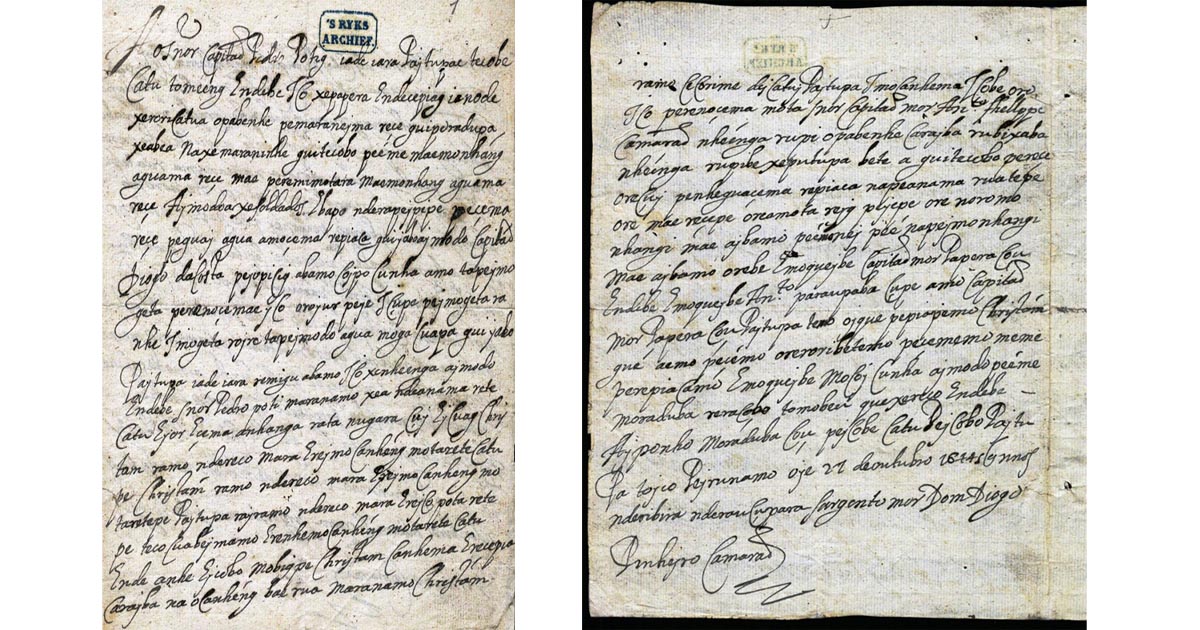 1
'S RYKS
ARCHIEF.
Ao Snõr Capitaõ Pedro Potig iade iara Pajtupae tecobe
Catu tomeeng Endebe Ico xepapera Endecepiag ianode
xeroricatua opabenhe pemaranejma rece guiporadupa
xeabea Naxemaraninhe guitecobo peême mâemonhang
aguama rece mae peremimotara Maemonhang aguama
rece Ajmodoa xesoldados Ebapo nderapejpipe pecema
rece peguaj agua amocema repiaca guijaboajmbodo Capitaõ
Diogo dacosta pejopicig abamo Cojpo Cunha amo tapejmo
geta perenocemae ico orojur peje Icupe pejmogeta ra
nhe Imogeta rojre tapejmodo agua moga Cuapa gui jabo
Pajtupa iade iara remiju abamo Ico xenheenga ajmodo
Endebe Snõr Pedro poti maranamo xea ndeanama rete
Catu Ejor Ecema anhanga rata nugara Coij Ejcuag Chris
tam ramo ndereco Mara Erejmo Canhêng motarete Catu
pe Christam ramo ndereco mara Erejmo Canhêng mo
taretepe Pajtupa rajramo ndereco mara Erejco pota rete
pe teco Cuabejmamo Erenhemo Canhêng motarete Catu
Ende anhe Ejcobo Mobigpe Christam Canhema Erecepia
Carajba na oCanhêng bae rua Maranamo Christam
rame Cecorime dijcatu Pajtupa Imocanhema Icobe ore
Ico perenocema mota Snõr Capitaõ mor Antº. phellippe
Camaraõ nheênga rupi opabenhe Carajba rubixaba
nheênga rupibe xeputupa bete a guitecobo perece
orecuj penheguacema repiaca napeanama ruatepe
ore mae recepe oreamota reij pejepe ore noromo
nhangi mâe ajbamo peême nej peê napejmonhangi
Mae ajbamo orebe Emoquejbe Capitaõ mor Papera Cou
Endebe Emoquejbe Antº paraupaba Cupe amo Capitaõ
mor Papera Cou Pajtupa teno oique pepiapemo Christam
que aemo pecêmo ororibetemo pecememo meme
perepiacamo Emoquejbe Mocoj Cunha ajmodo peême
moraduba reracobo tomobeu quexereco Endebe
Ajponho Moraduba Cou pejcobe Catu Pejcobo Pajtu
Pa toico Pejrunamo oje 21 de outubro 1645 annos
nderibira nderaucupara sargento mor Dom Diogo
Pinheiro Camaraõ